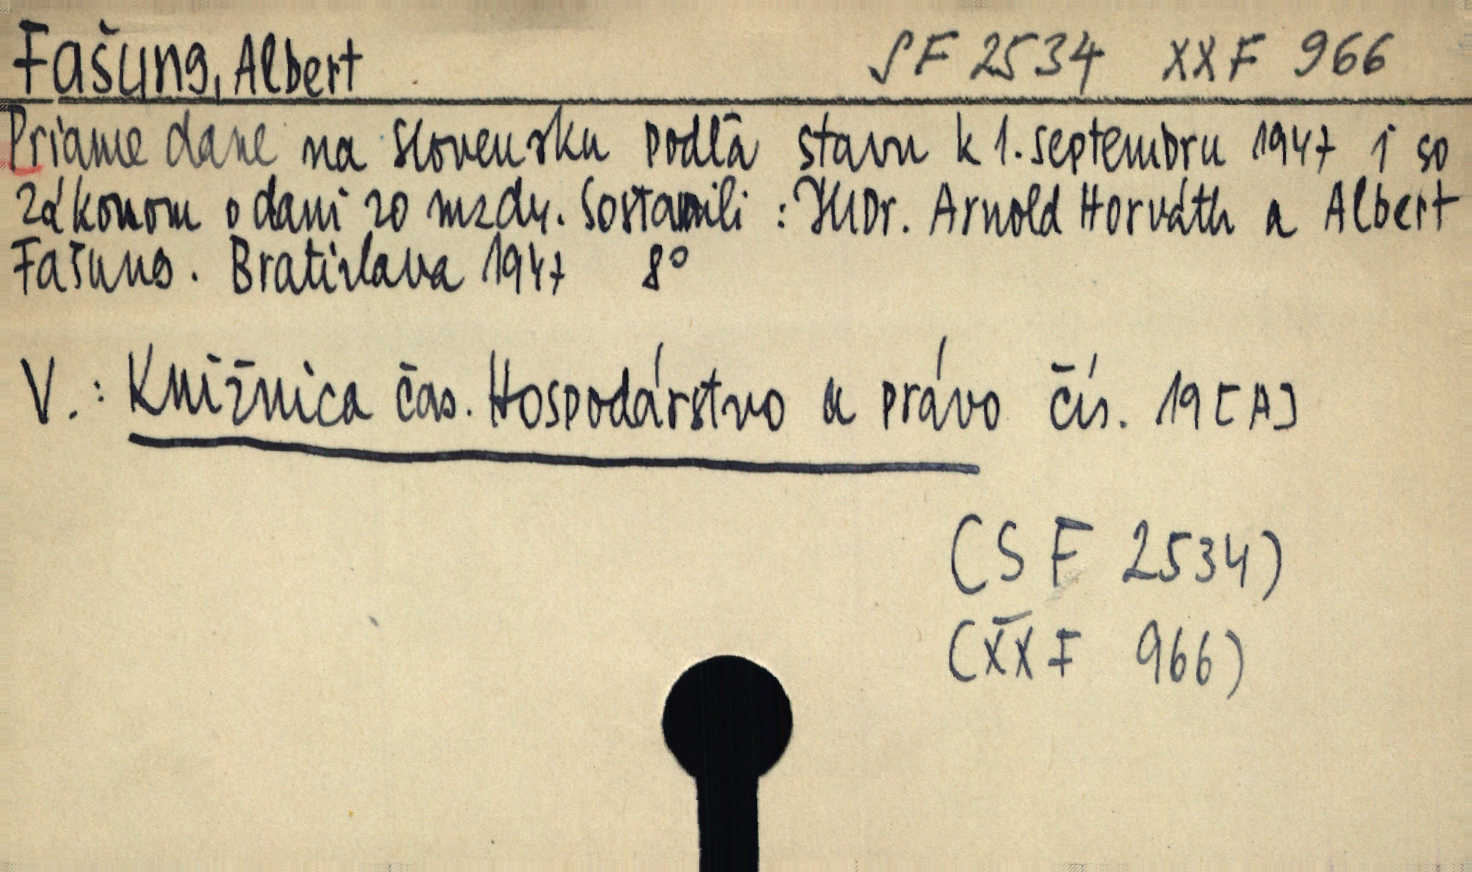 Fašung, Albert SF 2534 XXF 966
Priame dane na Slovensku podľa stavu k 1. septembru 1947 i so
zákonom o dani zo mzdy. Sostavili : JUDr. Arnold Horváth a Albert
Fašung. Bratislava 1947 8°
V.: Knižnica čas. Hospodárstvo a právo čís. 19 [A]
(SF 2534)
(XXF 966)